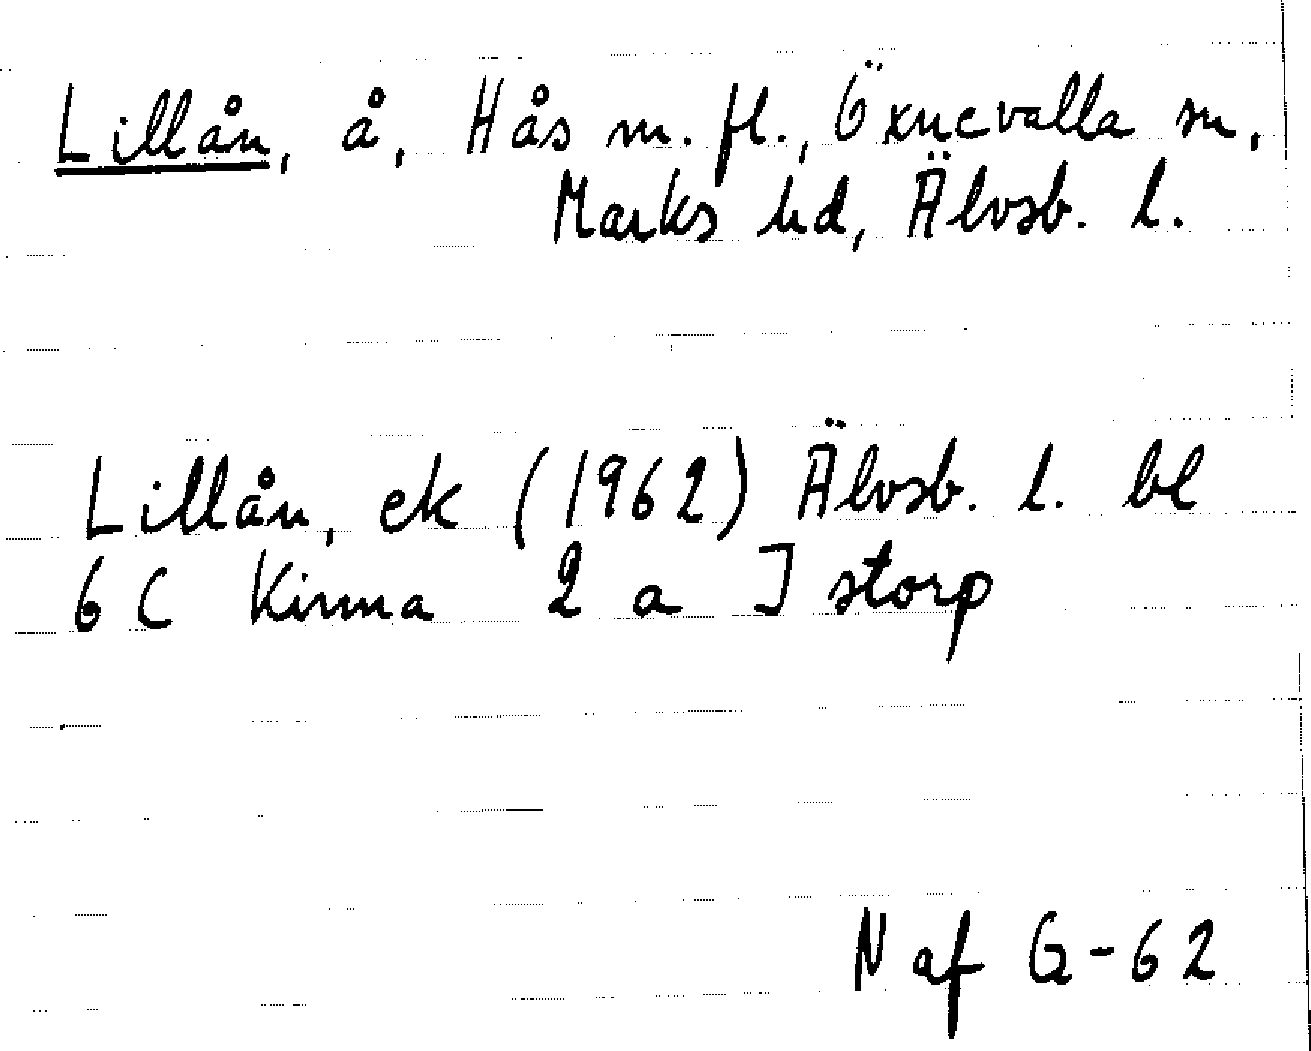 Lillån, å, Hås m. fl., Öxnevalla sn,
Marks hd, Älvsb. l.
Lillån, ek (1962) Älvsb. l. bl
6 C Kinna 2 a Istorp
N af G-62